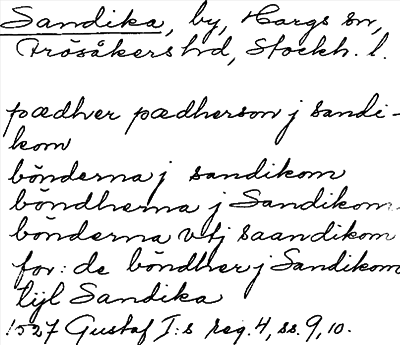 Sandika, by, Hargs sn,
Frösåkers hd, Stockh. l.
pædher pædherson j sandi-
kom
bönderna j sandikom
böndherna j Sandikom
bönderna vtj saandikom
for: de böndher j Sandikom
lijl Sandika
1527 Gustaf I:s reg. 4, ss. 9, 10.